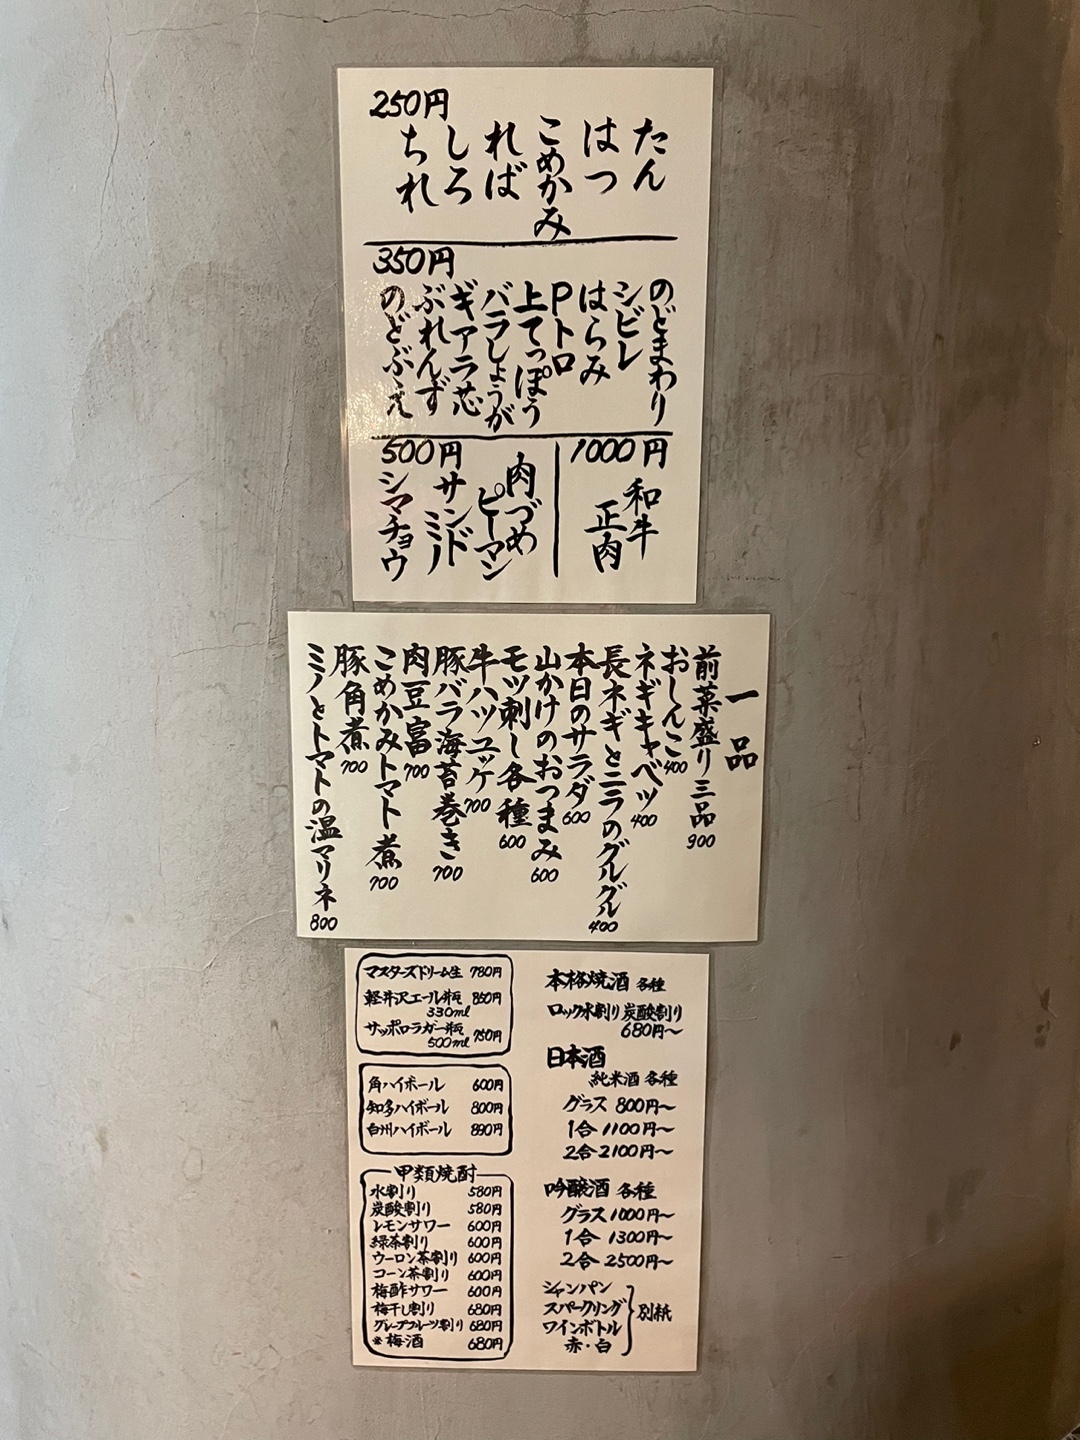 250円
たん
はつ
こめかみ
ればば
しろ
ちれ
350円
のどまわり
シビレ
はらみ
Pトロ
上てっぽう
バラしょうが
ギアラ芯
ぶれんず
のどぶえ
1000円
和牛
正肉
500円
肉づめ
ピーマン
サンドミノ
シマチョウ
一品
前菜盛り三品 900
おしんこ 400
ネギキャベツ 400
長ネギとニラのグルグル 400
本日のサラダ 600
山かけのおつまみ 600
モツ刺し各種 600
牛ハツユッケ 700
豚バラ海苔巻き 700
肉豆富 700
こめかみトマト煮 700
豚角煮 700
ミノとトマトの温マリネ 800
マスターズドリーム生 780円
軽井沢エール瓶 850円
330ml
サッポロラガー瓶 750円
500ml
角ハイボール 600円
知多ハイボール 800円
白州ハイボール 890円
甲類焼酎
水割り 580円
炭酸割り 580円
レモンサワー 600円
緑茶割り 600円
ウーロン茶割り 600円
コーン茶割り 600円
梅酢サワー 600円
梅干し割り 680円
グレープフルーツ割り 680円
※梅酒 680円
本格焼酒 各種
ロック水割り炭酸割り
680円～
日本酒
純米酒 各種
グラス 800円～
1合 1100円～
2合 2100円～
吟醸酒 各種
グラス 1000円～
1合 1300円～
2合 2500円～
シャンパン
スパークリング
ワインボトル
赤・白
別紙